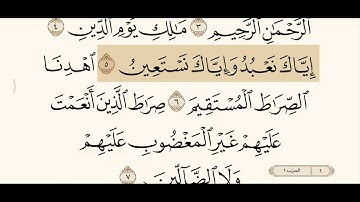 الرَّحْمَٰنِ الرَّحِيمِ ٣ مَٰلِكِ يَوْمِ الدِّينِ ٤
إِيَّاكَ نَعْبُدُ وَإِيَّاكَ نَسْتَعِينُ ٥ ٱهْدِنَا
الصِّرَاطَ الْمُسْتَقِيمَ ٦ صِرَاطَ الَّذِينَ أَنْعَمْتَ
عَلَيْهِمْ غَيْرِ الْمَغْضُوبِ عَلَيْهِمْ
وَلَا الضَّآلِّينَ ٧
الحزب ١
١